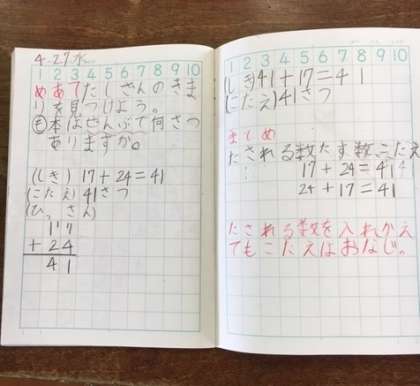 4.27水
1 2 3 4 5 6 7 8 9 10
めあてたしざんのきま
りを見つけよう。
も本はぜんぶで何さつ
ありますか。
(しき) 17+24=41
(こたえ)41さつ
(ひっさん)
17
+24
41
1 2 3 4 5 6 7 8 9 10
(しき)41+17=41
(こたえ)41さつ
まとめ
たされる数たす数こたえ
17+24=41
24+17=41
たされる数を入れかえ
てもこたえはおなじ。